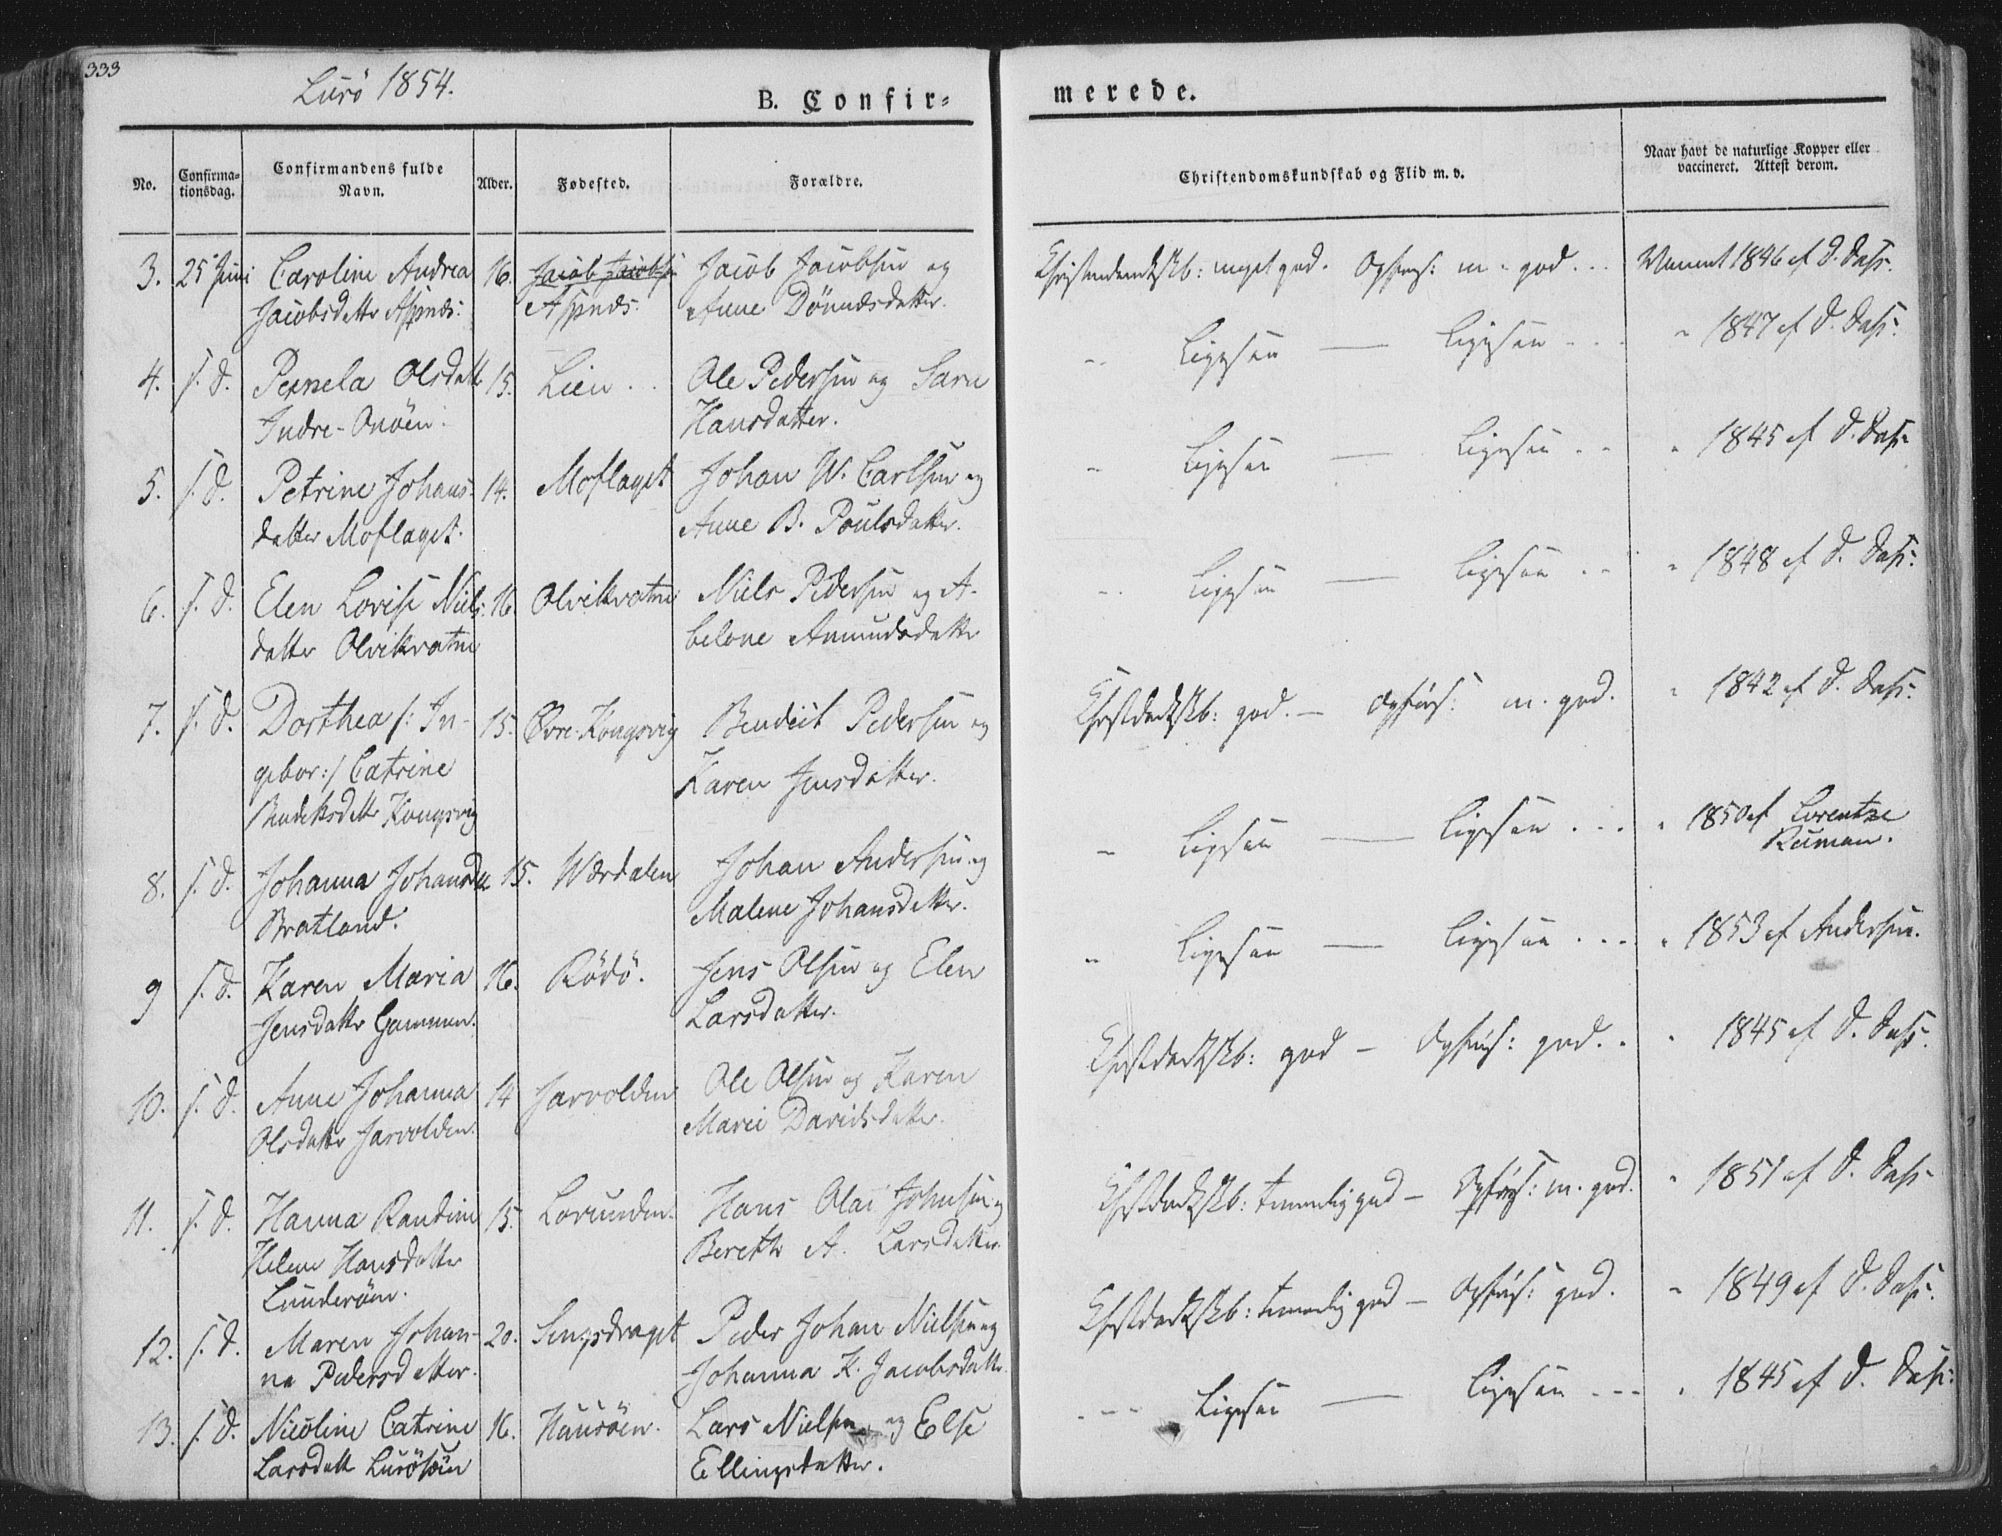 333
Lurö 1854.
B. Confir=
merede.
No.
Confirma=
tionsdag.
Confirmandens fulde
Navn.
Alder.
Fødested.
Forældre.
Christendomskundskab og Flid m. v.
Naar havt de naturlige Kopper eller
vaccineret. Attest derom.
3. 25 Juni Caroline Andrea 16. Jacob Jacobsen Jacob Jacobsen og
Jacobsdatter Aspnæs: Aspnæs. Anne Dönnesdatter.
meget god. m. god. 1846 af D. Dass.
4. s. d. Pernela Olsdatt 15. Lien Ole Pedersen og Sara
Indre-Onöen. Hansdatter.
" Ligesaa — Ligesaa " 1847 af D. Dass.
5. s. d. Petrine Johans= 14. Moflaget Johan W. Carlsen og
datter Moflaget. Anne B. Poulsdatter.
" Ligesaa — Ligesaa " 1845 af D. Dass.
6. s. d. Elen Lovise Niels: 16. Olvikvatne Niels Pedersen og A-
datter Olvikvatne belone Amundsdatter
" Ligesaa — Ligesaa " 1848 af D. Dass.
7. s. d. Dorthea /: In- 15. Övre-Kongsvig Bendict Pedersen og
gebor:/ Catrine Karen Jensdatter.
Kongsvig
god. — m. god. " 1842 af D. Dass.
8. s. d. Johanna Johansd 15. Værdalen Johan Andersen og
Bratland. Malene Johansdatter.
" Ligesaa — Ligesaa " 1850 af Lorentze
Ruman.
9 s. d. Karen Maria 16. Rödö. Jens Olsen og Elen
Jensdatter Gammen. Larsdatter.
" Ligesaa — Ligesaa " 1853 af Andersen.
10. s. d. Anne Johanna 14 Jarvolden Ole Olsen og Karen
Olsdatter Jarvolden. Marie Davidsdatter.
god — god. " 1845 af D. Dass.
11. s. d. Hanna Randine 15. Lovunden. Hans Olai Johnsen og
Helene Hansdatter Berethe A. Larsdatter.
Lunderöen.
temmelig god — m. god. " 1851 af D. Dass
12. s. d. Maren Johan- 20. Sengsdraget Peder Johan Nielsen og
na Pedersdatter. Johanna K. Jacobsdatter.
temmelig god — god. " 1849 af D. Dass.
13. s. d. Nicoline Catrine 16. Lars Nielsen og Else
Larsdatt Ellingsdatter.
" Ligesaa — Ligesaa " 1845 af D. Dass.